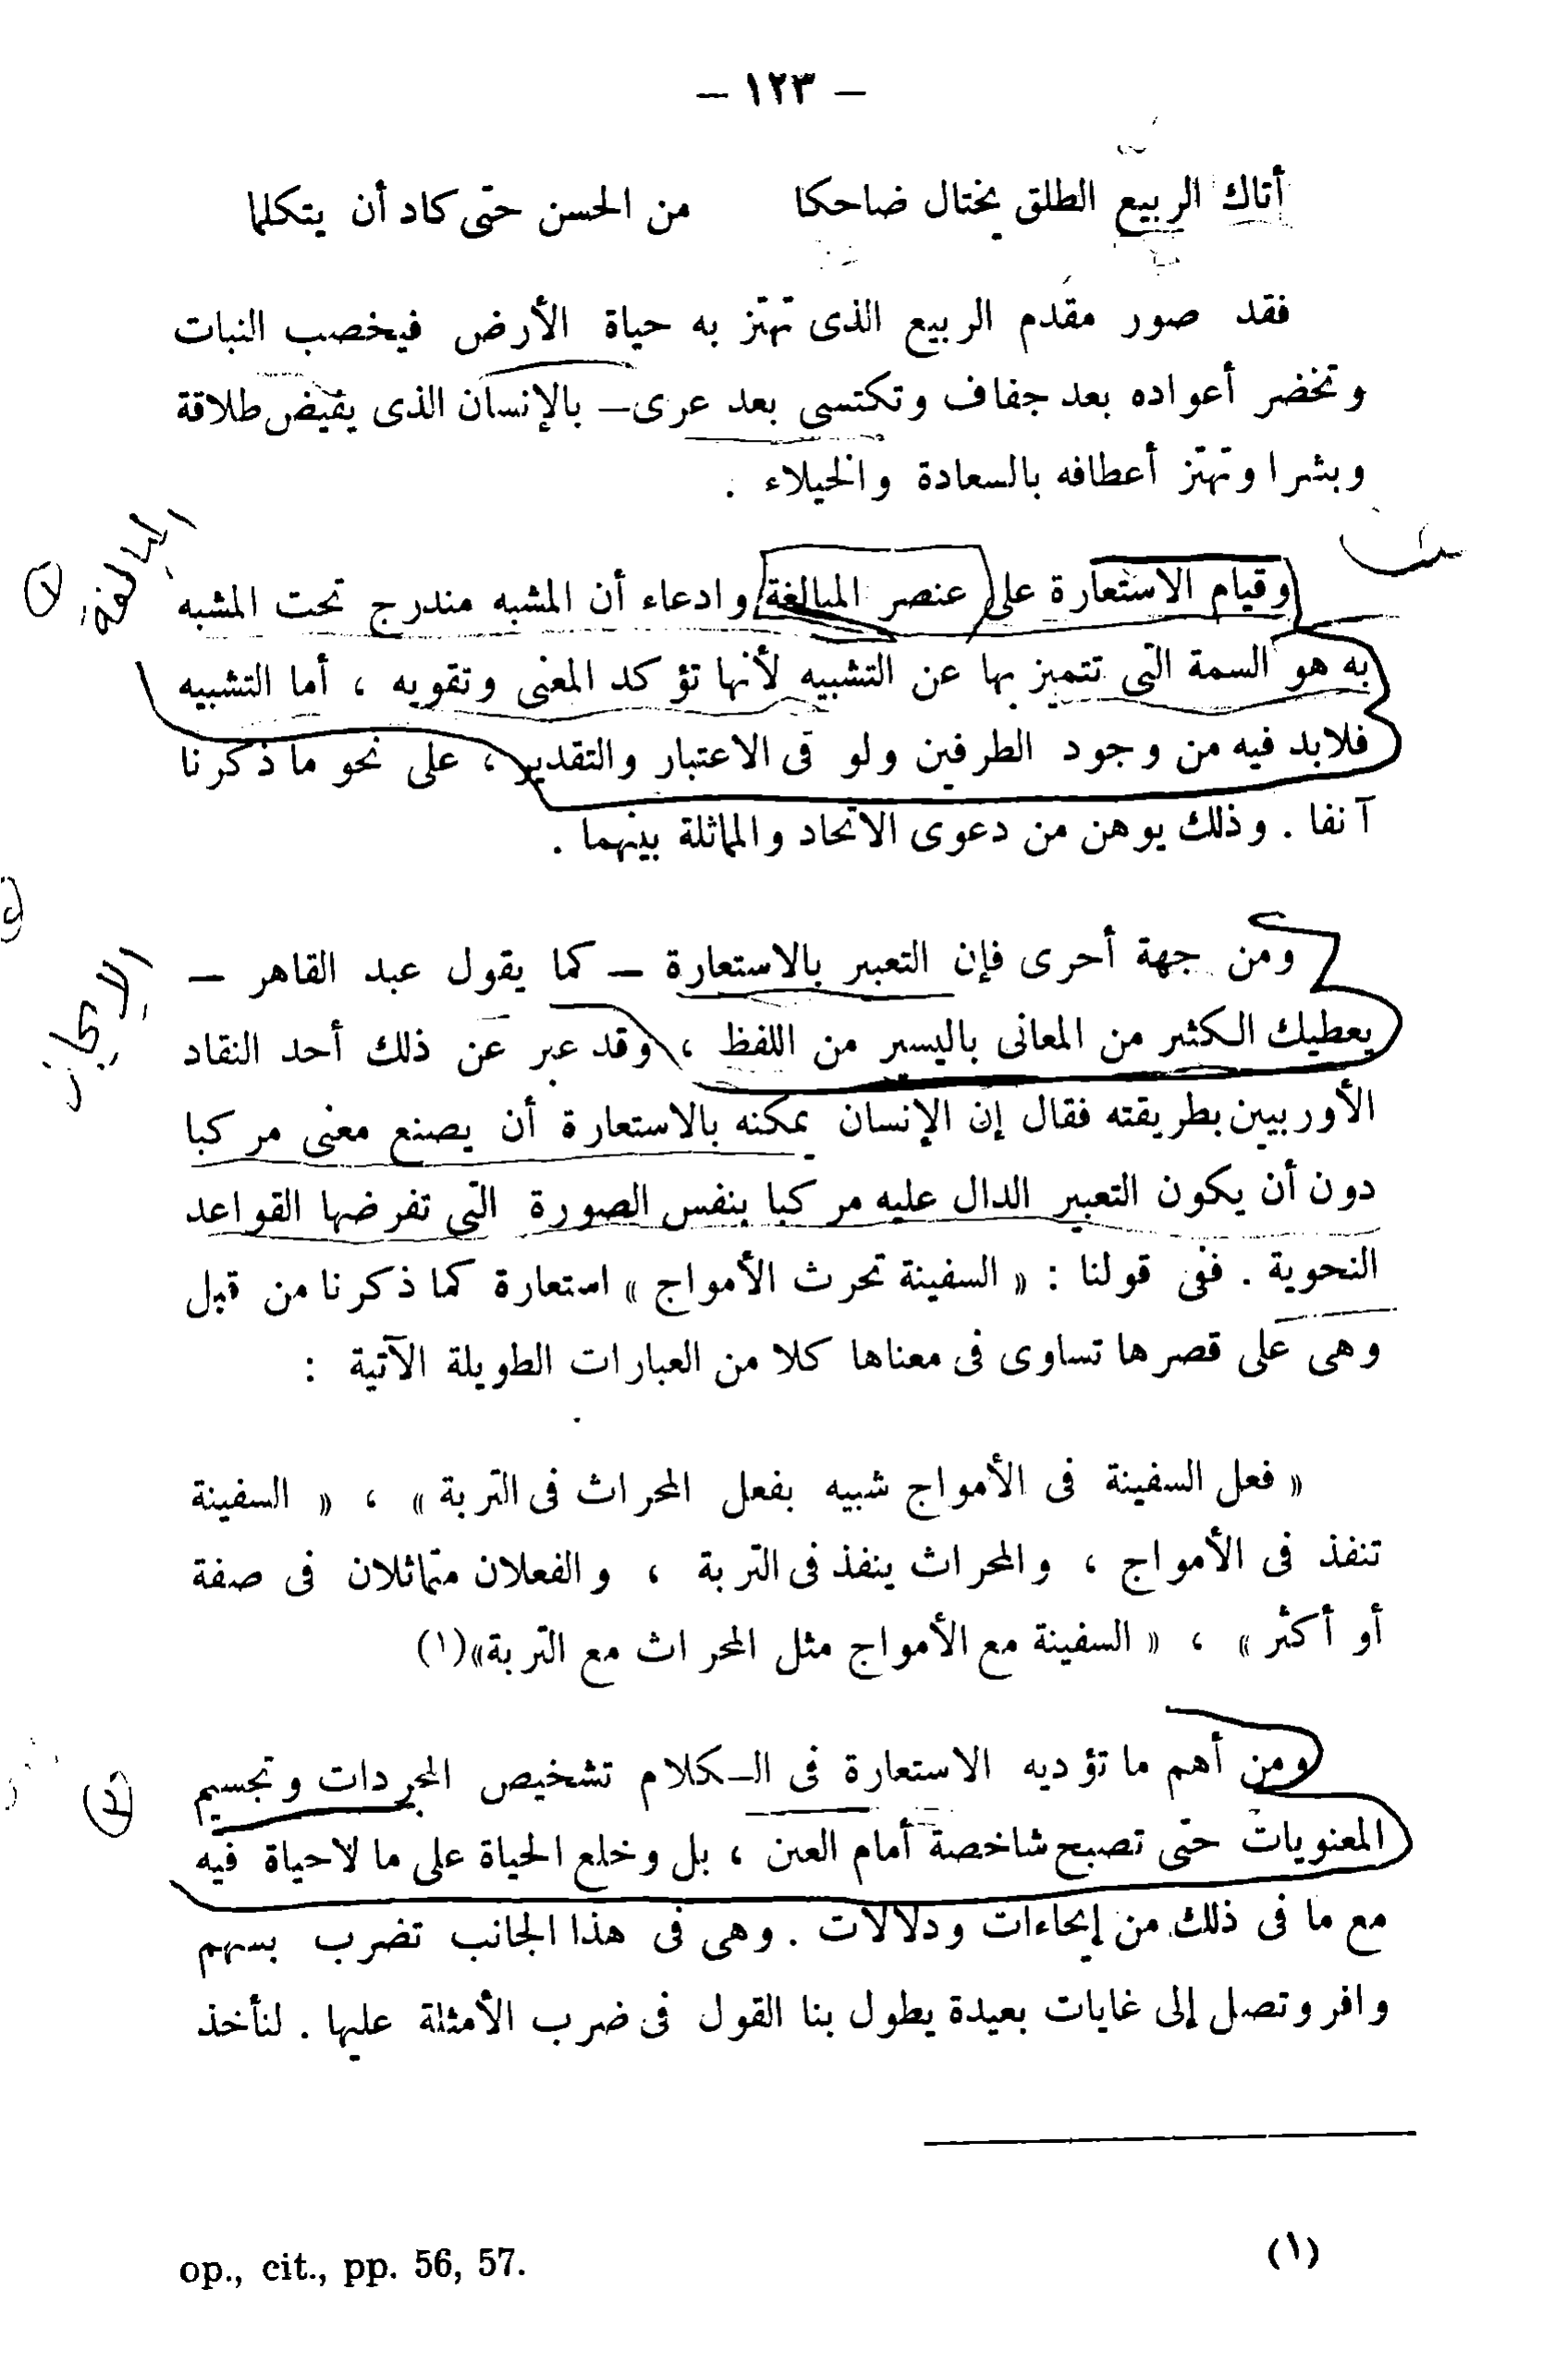 — ١٢٣ —
أتاك الربيع الطلق يختال ضاحكا من الحسن حتى كاد أن يتكلما
فقد صور مقدم الربيع الذى تهتز به حياة الأرض فيخصب النبات
وتخضر أعواده بعد جفاف وتكتسى بعد عرى — بالإنسان الذى يفيض طلاقة
وبشرا وتهتز أعطافه بالسعادة والخيلاء .
المبالغة
وقيام الاستعارة على عنصر المبالغة وادعاء أن المشبه مندرج تحت المشبه
به هو السمة التى تتميز بها عن التشبيه لأنها تؤكد المعنى وتقويه ، أما التشبيه
فلابد فيه من وجود الطرفين ولو فى الاعتبار والتقدير ، على نحو ما ذكرنا
آنفا . وذلك يوهن من دعوى الاتحاد والمماثلة بينهما .
الإيجاز
ومن جهة أحرى فإن التعبير بالاستعارة — كما يقول عبد القاهر —
يعطيك الكثير من المعانى باليسير من اللفظ ، وقد عبر عن ذلك أحد النقاد
الأوربيين بطريقته فقال إن الإنسان يمكنه بالاستعارة أن يصنع معنى مركبا
دون أن يكون التعبير الدال عليه مركبا بنفس الصورة التى تفرضها القواعد
النحوية . ففى قولنا : « السفينة تحرث الأمواج » استعارة كما ذكرنا من قبل
وهى على قصرها تساوى فى معناها كلا من العبارات الطويلة الآتية :
« فعل السفينة فى الأمواج شبيه بفعل المحراث فى التربة » ، « السفينة
تنفذ فى الأمواج ، والمحراث ينفذ فى التربة ، والفعلان متماثلان فى صفة
أو أكثر » ، « السفينة مع الأمواج مثل المحراث مع التربة»(١)
ومن أهم ما تؤديه الاستعارة فى الـكلام تشخيص المجردات وتجسيم
المعنويات حتى تصبح شاخصة أمام العين ، بل وخلع الحياة على ما لاحياة فيه
مع ما فى ذلك من إيحاءات ودلالات . وهى فى هذا الجانب تضرب بسهم
وافر وتصل إلى غايات بعيدة يطول بنا القول فى ضرب الأمثلة عليها . لنأخذ
(١) op., cit., pp. 56, 57.